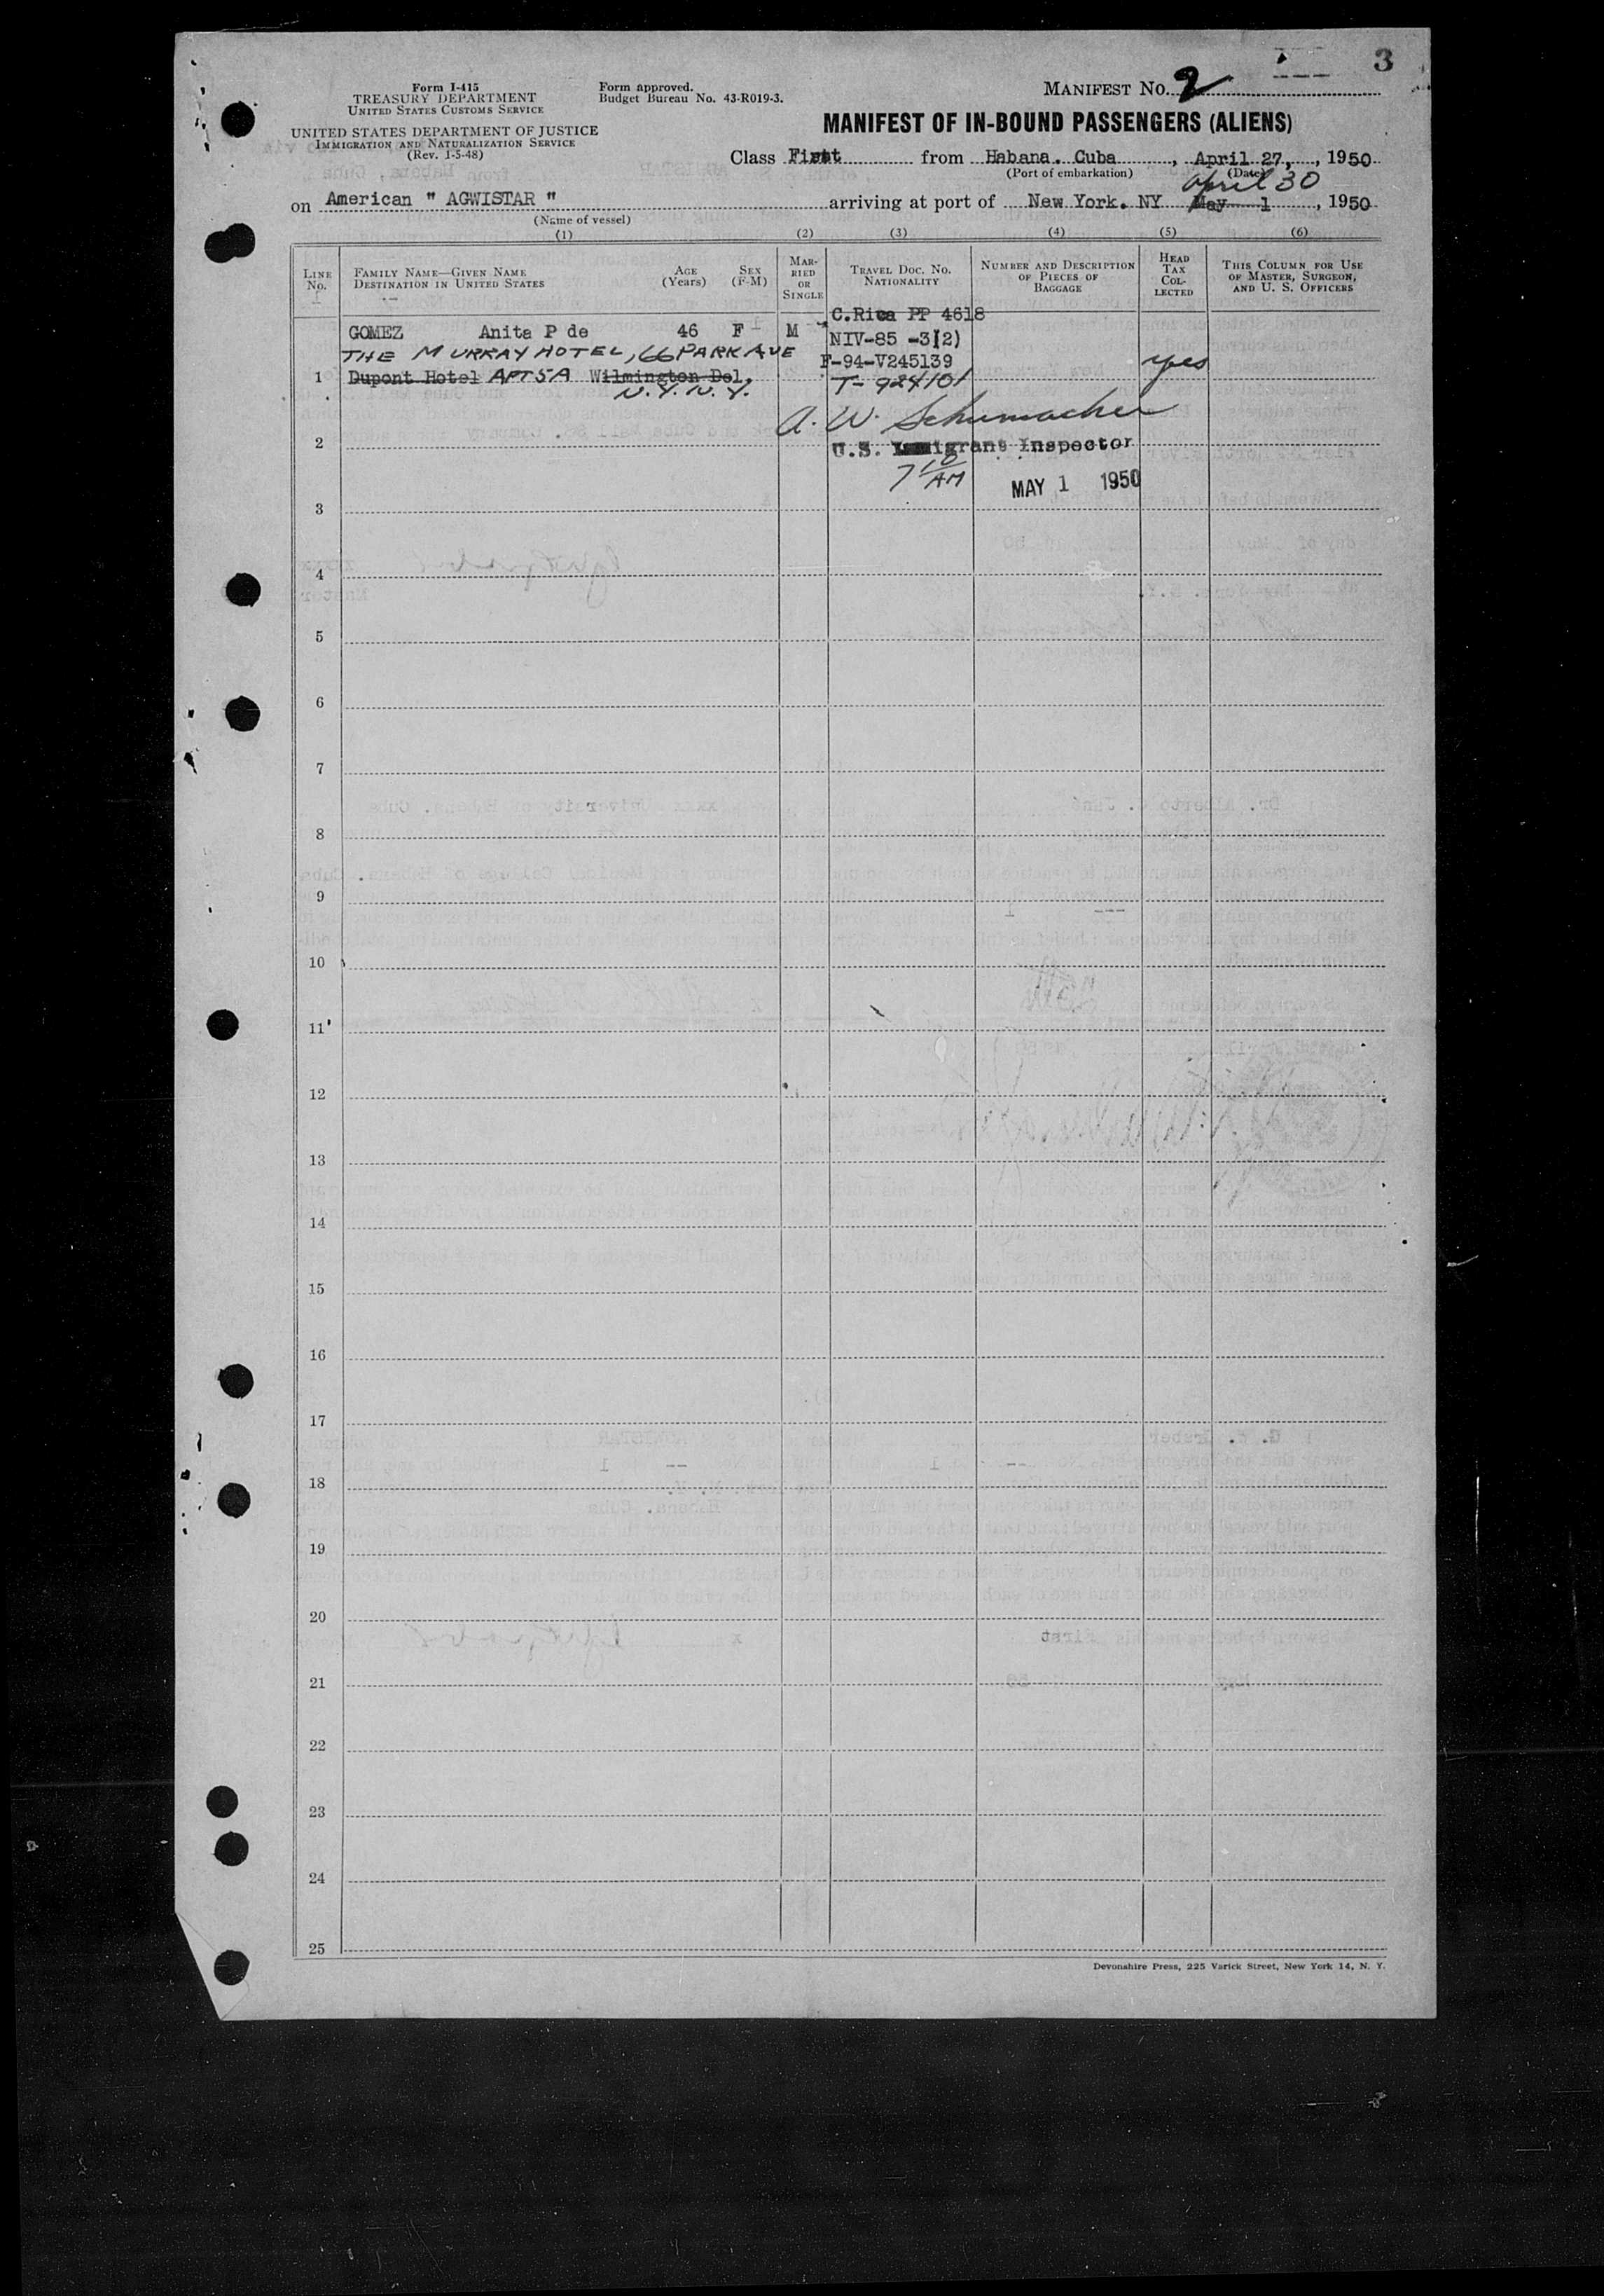 3
Form I-415
TREASURY DEPARTMENT
UNITED STATES CUSTOMS SERVICE
UNITED STATES DEPARTMENT OF JUSTICE
IMMIGRATION AND NATURALIZATION SERVICE
(Rev. 1-5-48)
Form approved.
Budget Bureau No. 43-R019-3.
MANIFEST NO. 2
MANIFEST OF IN-BOUND PASSENGERS (ALIENS)
Class First from Habana. Cuba, April 27, 1950
(Port of embarkation) (Date)
April 30
on American " AGWISTAR " arriving at port of New York. NY May 1, 1950
(Name of vessel)
(1) (2) (3) (4) (5) (6)
LINE NO.
FAMILY NAME—GIVEN NAME
DESTINATION IN UNITED STATES
AGE (Years)
SEX (F-M)
MARRIED OR SINGLE
TRAVEL DOC. NO.
NATIONALITY
NUMBER AND DESCRIPTION OF PIECES OF BAGGAGE
HEAD TAX COLLECTED
THIS COLUMN FOR USE OF MASTER, SURGEON, AND U. S. OFFICERS
C.Rica PP 4618
GOMEZ Anita P de 46 F M NIV-85 -3(2)
THE MURRAY HOTEL, 66 PARK AVE F-94-V245139 yes
1 Dupont Hotel APT 5A Wilmington Del. T-924101
N.Y. N.Y.
A. W. Schumacher
2 U.S. Immigrant Inspector
7 10 AM MAY 1 1950
3
4
5
6
7
8
9
10
11
12
13
14
15
16
17
18
19
20
21
22
23
24
25
Devonshire Press, 225 Varick Street, New York 14, N. Y.